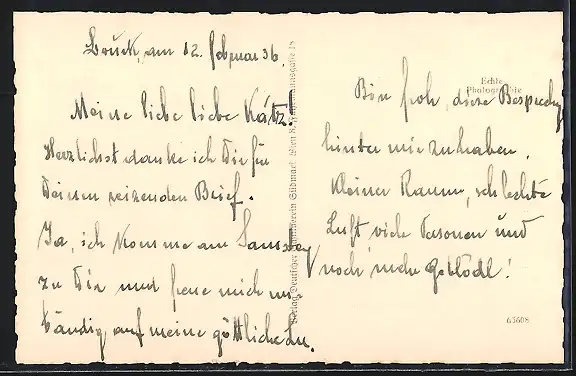 Bruck, am 12. Februar 36.
Meine liebe liebe Kätz!
Herzlichst danke ich Dir für
Deinen reizenden Brief.
Ja, ich komme am Samstag
zu Dir und freue mich un-
bändig auf meine göttliche
Echte
Photographie
Bin froh, diese Besprechg
hinter mir zu haben.
Kleiner Raum, schlechte
Luft, viele Personen und
noch mehr Geblödl!
63608